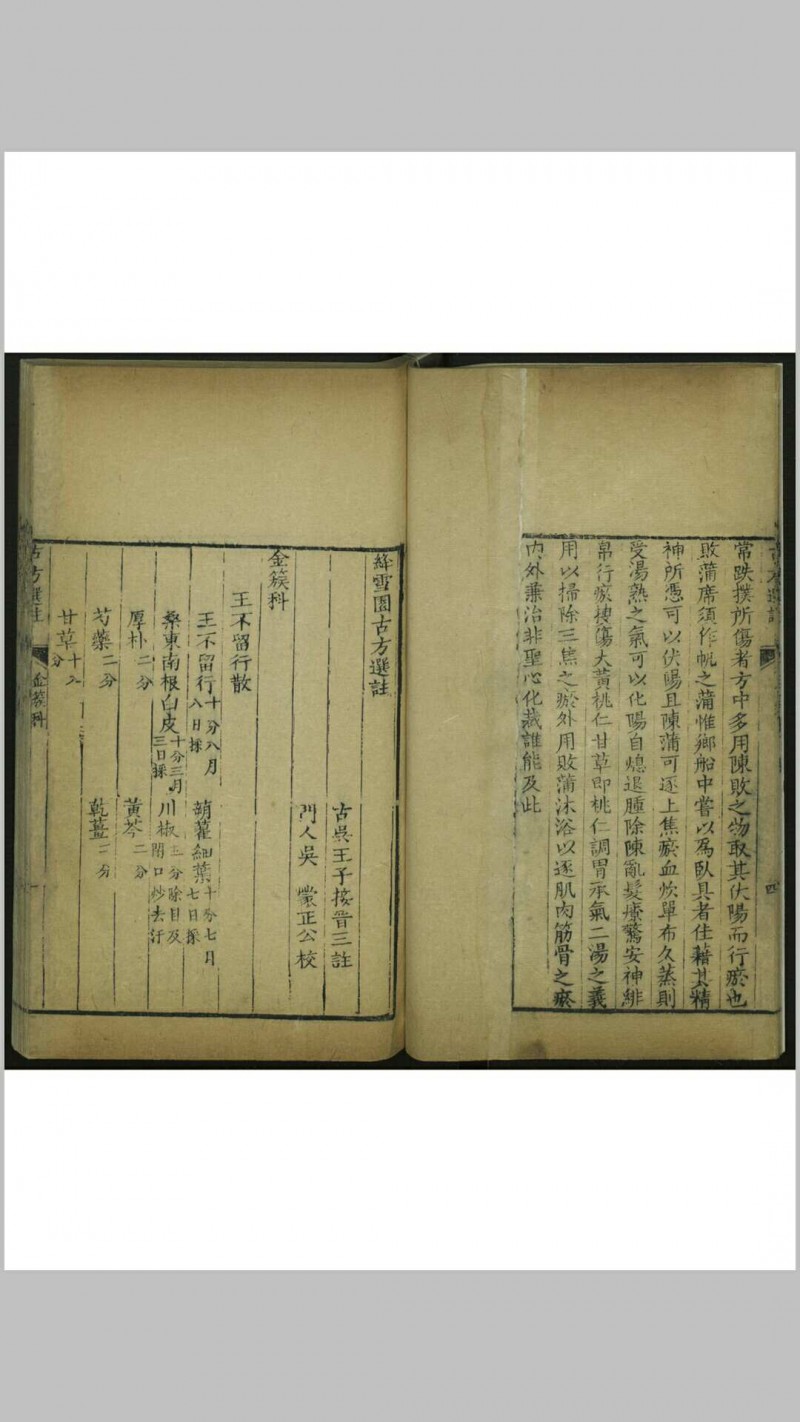 常跌撲所傷者方中多用陳敗之物取其伏陽而行瘀也
敗蒲席須作帆之蒲惟鄉船中嘗以為臥具者佳藉其精
神所憑可以伏陽且陳蒲可逐上焦瘀血炊單布久蒸則
受湯熟之氣可以化陽自熄退腫除陳亂髮療驚安神緋
帛行瘀悽傷大黃桃仁甘草即桃仁調胃承氣二湯之義
用以掃除三焦之瘀外用敗蒲沐浴以逐肌肉筋骨之瘀
內外兼治非聖心化裁誰能及此
四
絳雪園古方選註
古吳王子接晉三註
門人吳 蒙正公校
金簇科
王不留行散
王不留行十分八月八日採 蒴藋細葉十分七月七日採
桑東南根白皮十分三月三日採 川椒三分除目及閉口炒去汗
厚朴二分 黃芩二分
芍藥二分 乾薑二分
甘草十八分
古方選註 金簇科 一